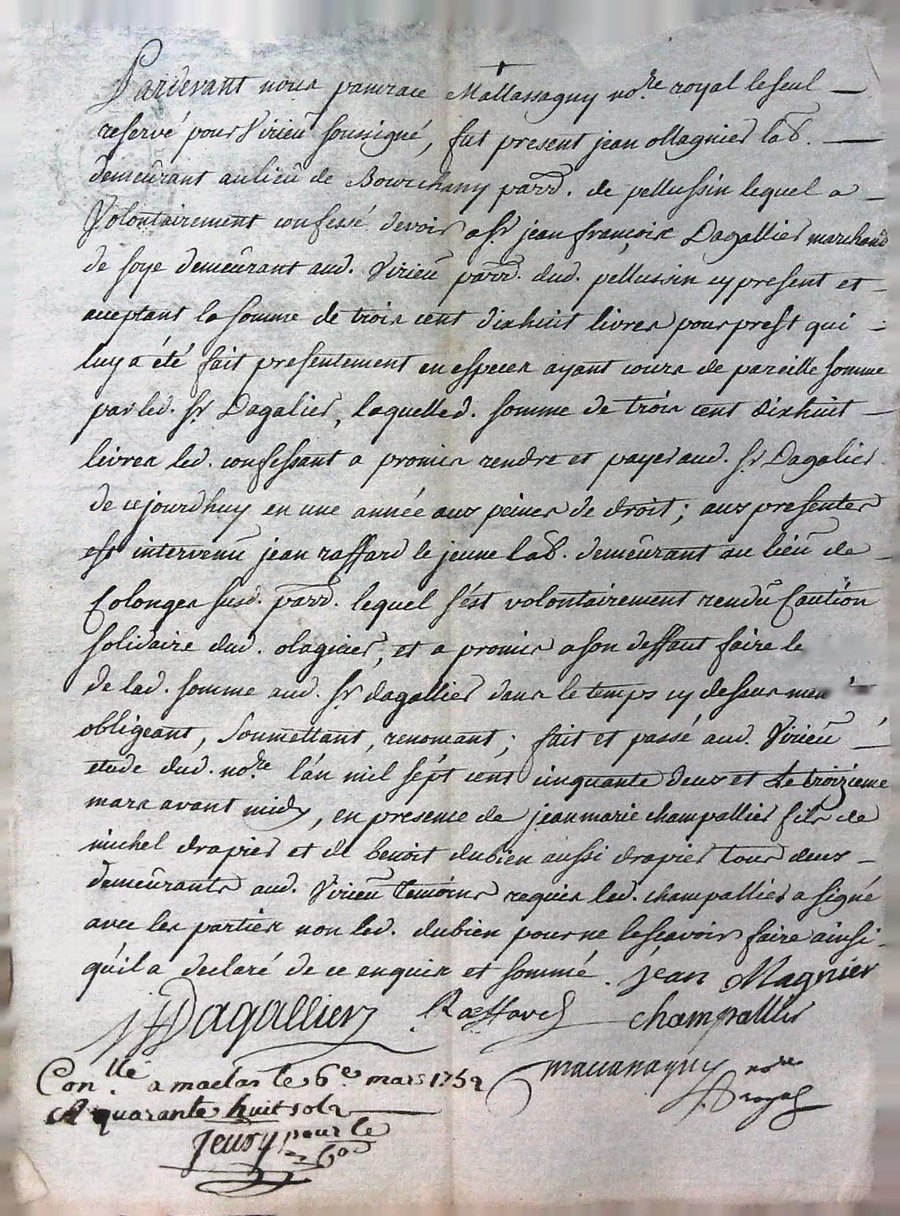 Pardevant nous pancrace Mallassagny nore royal le seul
reservé pour Virieu soussigné, fut present jean Olagnier lab.
demeurant au lieu de Bourchany parr. de pellussin lequel a
Volontairement confessé devoir a Sr jean françois Dagallier marchand
de soye demeurant aud. Virieu parr. dud. pellussin cy present et
acceptant la somme de trois cent dixhuit livres pour prest qui
luy a été fait presentement en especes ayant cours de pareille somme
par led. Sr Dagalier, laquelled. somme de trois cent dixhuit
livres led. confessant a promis rendre et payer aud. Sr Dagalier
de cejourdhuy en une année aux peines de droit; aux presentes
est intervenu jean raffard le jeune lab. demeurant au lieu de
Colonges susd. parr. lequel s'est volontairement rendu Caution
solidaire dud. olagnier, et a promis a son deffaut faire le
de lad. somme aud. Sr dagallier dans le temps cy dessus
obligeant, Soumettant, renonçant; fait et passé aud. Virieu
etude dud. nore l'an mil sept cent cinquante deux et le troizieme
mars avant midy, en presence de jean marie champallier fils de
michel drapier et de benoit dubien aussi drapier tous deux
demeurants aud. Virieu temoins requis led. champallier a signé
avec les parties non led. dubien pour ne le scavoir faire ainsi
qu'il a declaré de ce enquis et sommé. jean Olagnier
jf Dagallier Raffard champallier
Conllé a maclas le 6e mars 1752 mallassagny nore
R quarante huit sols royal
Jeury pour le